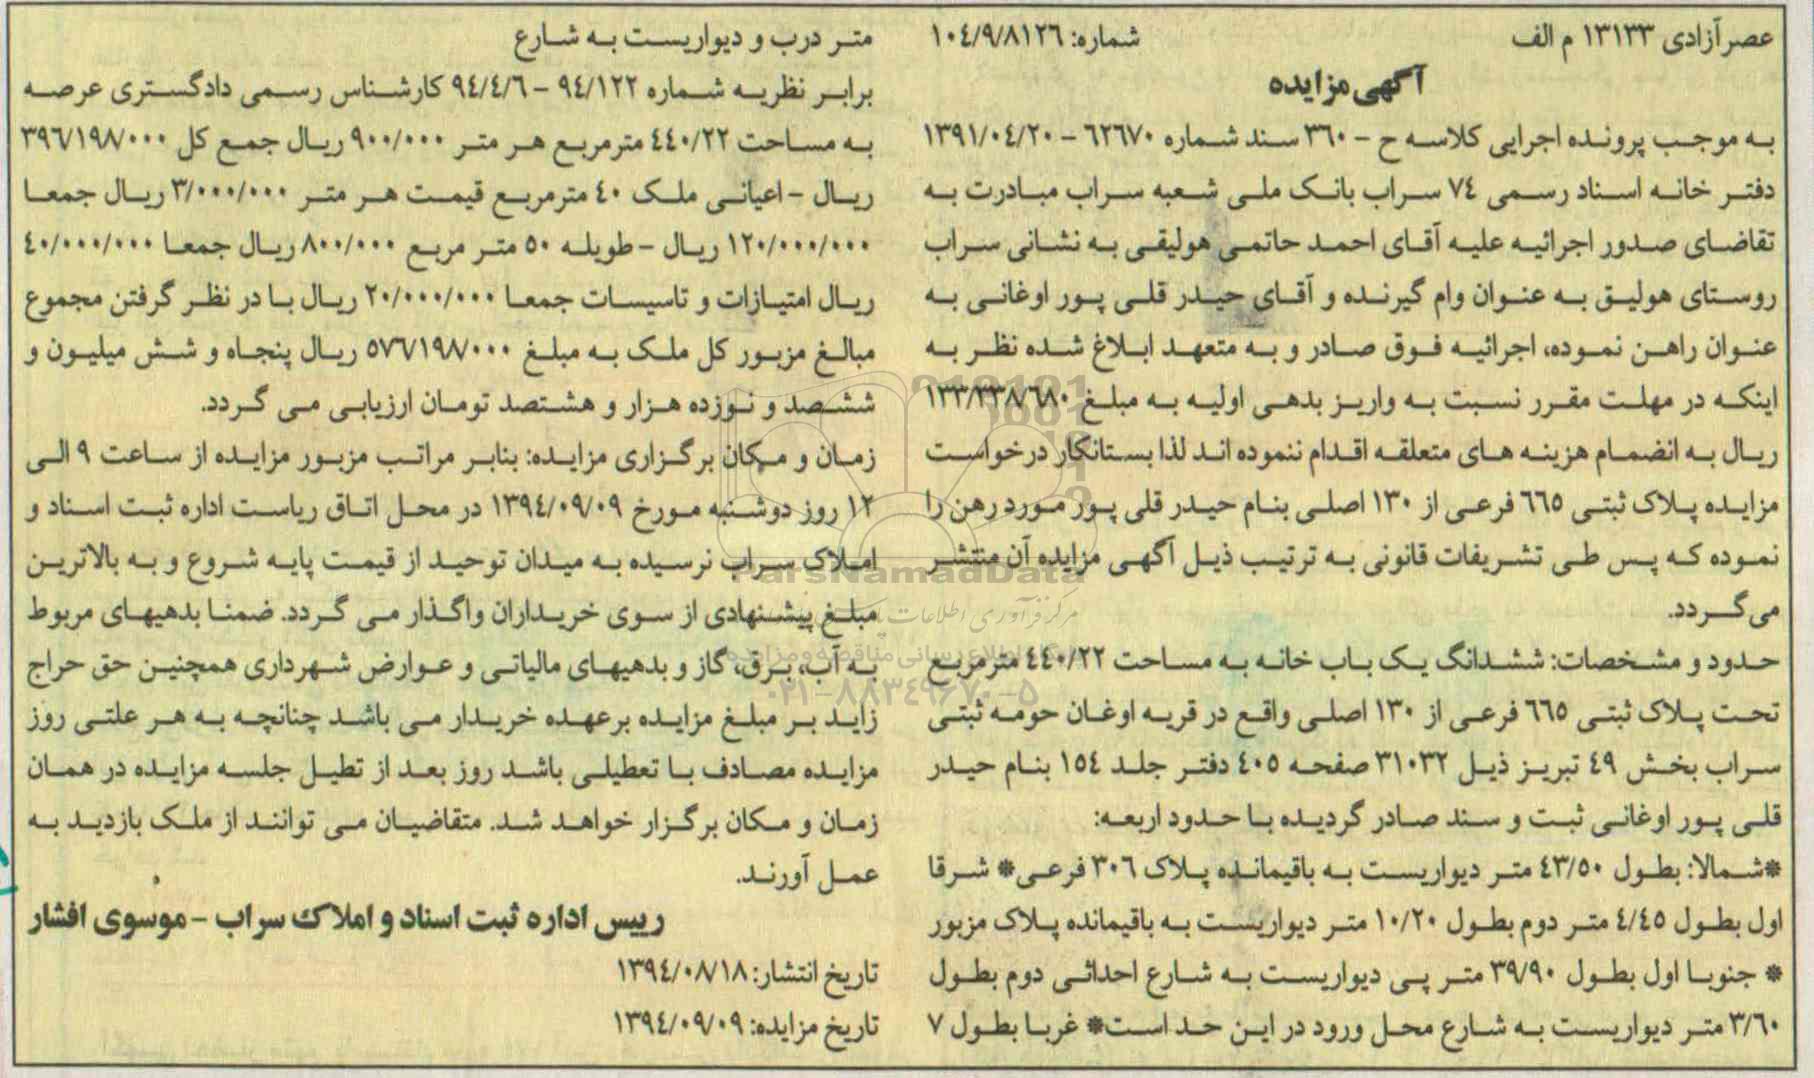 عصر آزادی ۱۳۱۳۳ م الف
شماره: ۱۰۴/۹/۸۱۲۶
آگهی مزایده
به موجب پرونده اجرایی کلاسه ح - ۳۶۰ سند شماره ۶۲۶۷۰ - ۱۳۹۱/۰۴/۲۰
دفتر خانه اسناد رسمی ۷۴ سراب بانک ملی شعبه سراب مبادرت به
تقاضای صدور اجرائیه علیه آقای احمد حاتمی هولیقی به نشانی سراب
روستای هولیق به عنوان وام گیرنده و آقای حیدر قلی پور اوغانی به
عنوان راهن نموده، اجرائیه فوق صادر و به متعهد ابلاغ شده نظر به
اینکه در مهلت مقرر نسبت به واریز بدهی اولیه به مبلغ ۱۳۳/۳۳۸/۶۸۰
ریال به انضمام هزینه های متعلقه اقدام ننموده اند لذا بستانکار درخواست
مزایده پلاک ثبتی ۶۶۵ فرعی از ۱۳۰ اصلی بنام حیدر قلی پور مورد رهن را
نموده که پس طی تشریفات قانونی به ترتیب ذیل آگهی مزایده آن منتشر
می گردد.
حدود و مشخصات: ششدانگ یک باب خانه به مساحت ۴۴۰/۲۲ مترمربع
تحت پلاک ثبتی ۶۶۵ فرعی از ۱۳۰ اصلی واقع در قریه اوغان حومه ثبتی
سراب بخش ۴۹ تبریز ذیل ۳۱۰۳۲ صفحه ۴۰۵ دفتر جلد ۱۵۴ بنام حیدر
قلی پور اوغانی ثبت و سند صادر گردیده با حدود اربعه:
*شمالا: بطول ۴۳/۵۰ متر دیواریست به باقیمانده پلاک ۳۰۶ فرعی* شرقا
اول بطول ۴/۴۵ متر دوم بطول ۱۰/۲۰ متر دیواریست به باقیمانده پلاک مزبور
* جنوبا اول بطول ۳۹/۹۰ متر پی دیواریست به شارع احداثی دوم بطول
۳/۶۰ متر دیواریست به شارع محل ورود در این حد است* غربا بطول ۷
متر درب و دیواریست به شارع
برابر نظریه شماره ۹۴/۱۲۲ - ۹۴/۴/۶ کارشناس رسمی دادگستری عرصه
به مساحت ۴۴۰/۲۲ مترمربع هر متر ۹۰۰/۰۰۰ ریال جمع کل ۳۹۶/۱۹۸/۰۰۰
ریال - اعیانی ملک ۴۰ مترمربع قیمت هر متر ۳/۰۰۰/۰۰۰ ریال جمعا
۱۲۰/۰۰۰/۰۰۰ ریال - طویله ۵۰ متر مربع ۸۰۰/۰۰۰ ریال جمعا ۴۰/۰۰۰/۰۰۰
ریال امتیازات و تاسیسات جمعا ۲۰/۰۰۰/۰۰۰ ریال با در نظر گرفتن مجموع
مبالغ مزبور کل ملک به مبلغ ۵۷۶/۱۹۸/۰۰۰ ریال پنجاه و شش میلیون و
ششصد و نوزده هزار و هشتصد تومان ارزیابی می گردد.
زمان و مکان برگزاری مزایده: بنابر مراتب مزبور مزایده از ساعت ۹ الی
۱۲ روز دوشنبه مورخ ۱۳۹۴/۰۹/۰۹ در محل اتاق ریاست اداره ثبت اسناد و
املاک سراب نرسیده به میدان توحید از قیمت پایه شروع و به بالاترین
مبلغ پیشنهادی از سوی خریداران واگذار می گردد. ضمنا بدهیهای مربوط
به آب، برق، گاز و بدهیهای مالیاتی و عوارض شهرداری همچنین حق حراج
زاید بر مبلغ مزایده برعهده خریدار می باشد چنانچه به هر علتی روز
مزایده مصادف با تعطیلی باشد روز بعد از تطیل جلسه مزایده در همان
زمان و مکان برگزار خواهد شد. متقاضیان می توانند از ملک بازدید به
عمل آورند.
رییس اداره ثبت اسناد و املاک سراب - موسوی افشار
تاریخ انتشار: ۱۳۹۴/۰۸/۱۸
تاریخ مزایده: ۱۳۹۴/۰۹/۰۹
ParsNamadData
۰۲۱-۸۸۳۴۹۶۷۰-۵